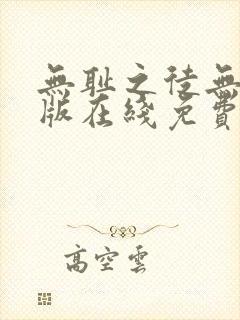 無耻之徒無
版在綫免費
高空雲